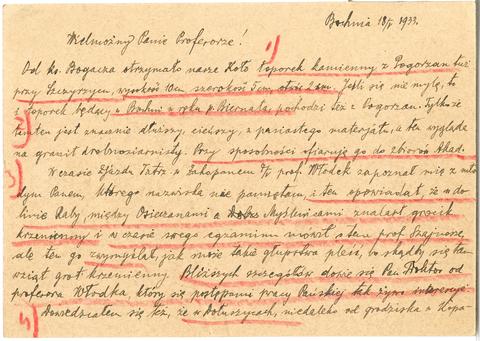 Bochnia 18/V 1933.
Wielmożny Panie Profesorze!
1)
Od ks. Bogacza otrzymało nasze Koło toporek kamienny z Pogorzan tuż
przy Szczyrzycu, wysokość 10 cm szerokość 5 cm, otwór 2 cm. Jeśli się nie mylę, to
i toporek będący w Bochni w ręku p. Biernata, pochodzi też z Pogorzan. Tylko że
2)
tamten jest znacznie dłuższy, cieńszy, z pasiastego materjału, a ten wygląda
na granit drobnoziarnisty. Przy sposobności ofiaruję go do zbiorów Akad.
3)
W czasie Zjazdu Tatrz. w Zakopanem prof. Włodek zapoznał mię z mło
dym Panem, którego nazwiska nie pamiętam, i ten opowiadał, że w do
linie Raby, między Osieczanami a Myślenicami znalazł grocik
krzemienny i w czasie swego egzaminu mówił o tem prof. Szajnosze,
ale ten go zwymyślał, jak może takie głupstwa pleść, bo skądby się tam
wziął grot krzemienny. Bliższych szczegółów dowie się Pan Doktor od
profesora Włodka, który się postępami pracy Pańskiej tak żywo interesuje.
Dowiedziałem się też, że w niedaleko od grodziska w